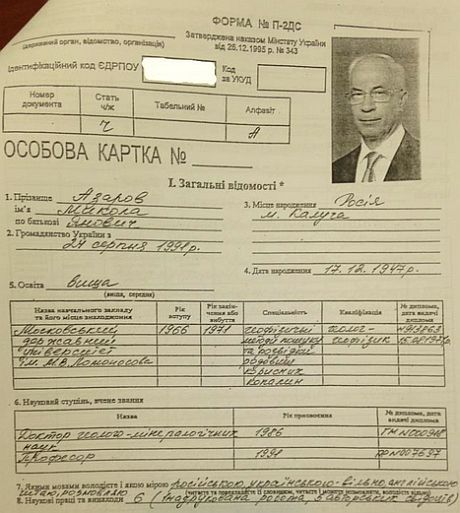 ФОРМА № П-2ДС
Затверджена наказом Мінстату України
від 26.12.1995 р. № 343
(державний орган, відомство, організація)
Ідентифікаційний код ЄДРПОУ
Код
за УКУД
Номер документа Стать ч/ж Табельний № Алфавіт
ч А
ОСОБОВА КАРТКА №
I. Загальні відомості *
1. Прізвище Азаров
ім'я Микола
по батькові Янович
2. Громадянство України з
24 серпня 1991 р.
3. Місце народження Росія
м. Калуга
4. Дата народження 17.12.1947 р.
5. Освіта вища
(вища, середня)
Назва навчального закладу та його місце знаходження Рік вступу Рік закінчення або вибуття Спеціальність Кваліфікація № диплома, дата видачі диплома
Московський державний університет ім. М.В. Ломоносова 1966 1971 геофізичні методи пошуку та розвідки родовищ корисних копалин геолог-геофізик
6. Науковий ступінь, вчене звання
Назва Рік присвоєння № диплома, дата видачі диплома
Доктор геолого-мінералогічних наук 1986 ГМ №000948
Професор 1991 №007697
7. Якими мовами володієте і якою мірою російською, українською - вільно, англійською
читаю, розмовляю (читаєте та перекладаєте із словником, читаєте і можете розмовляти, володієте вільно)
8. Наукові праці та винаходи